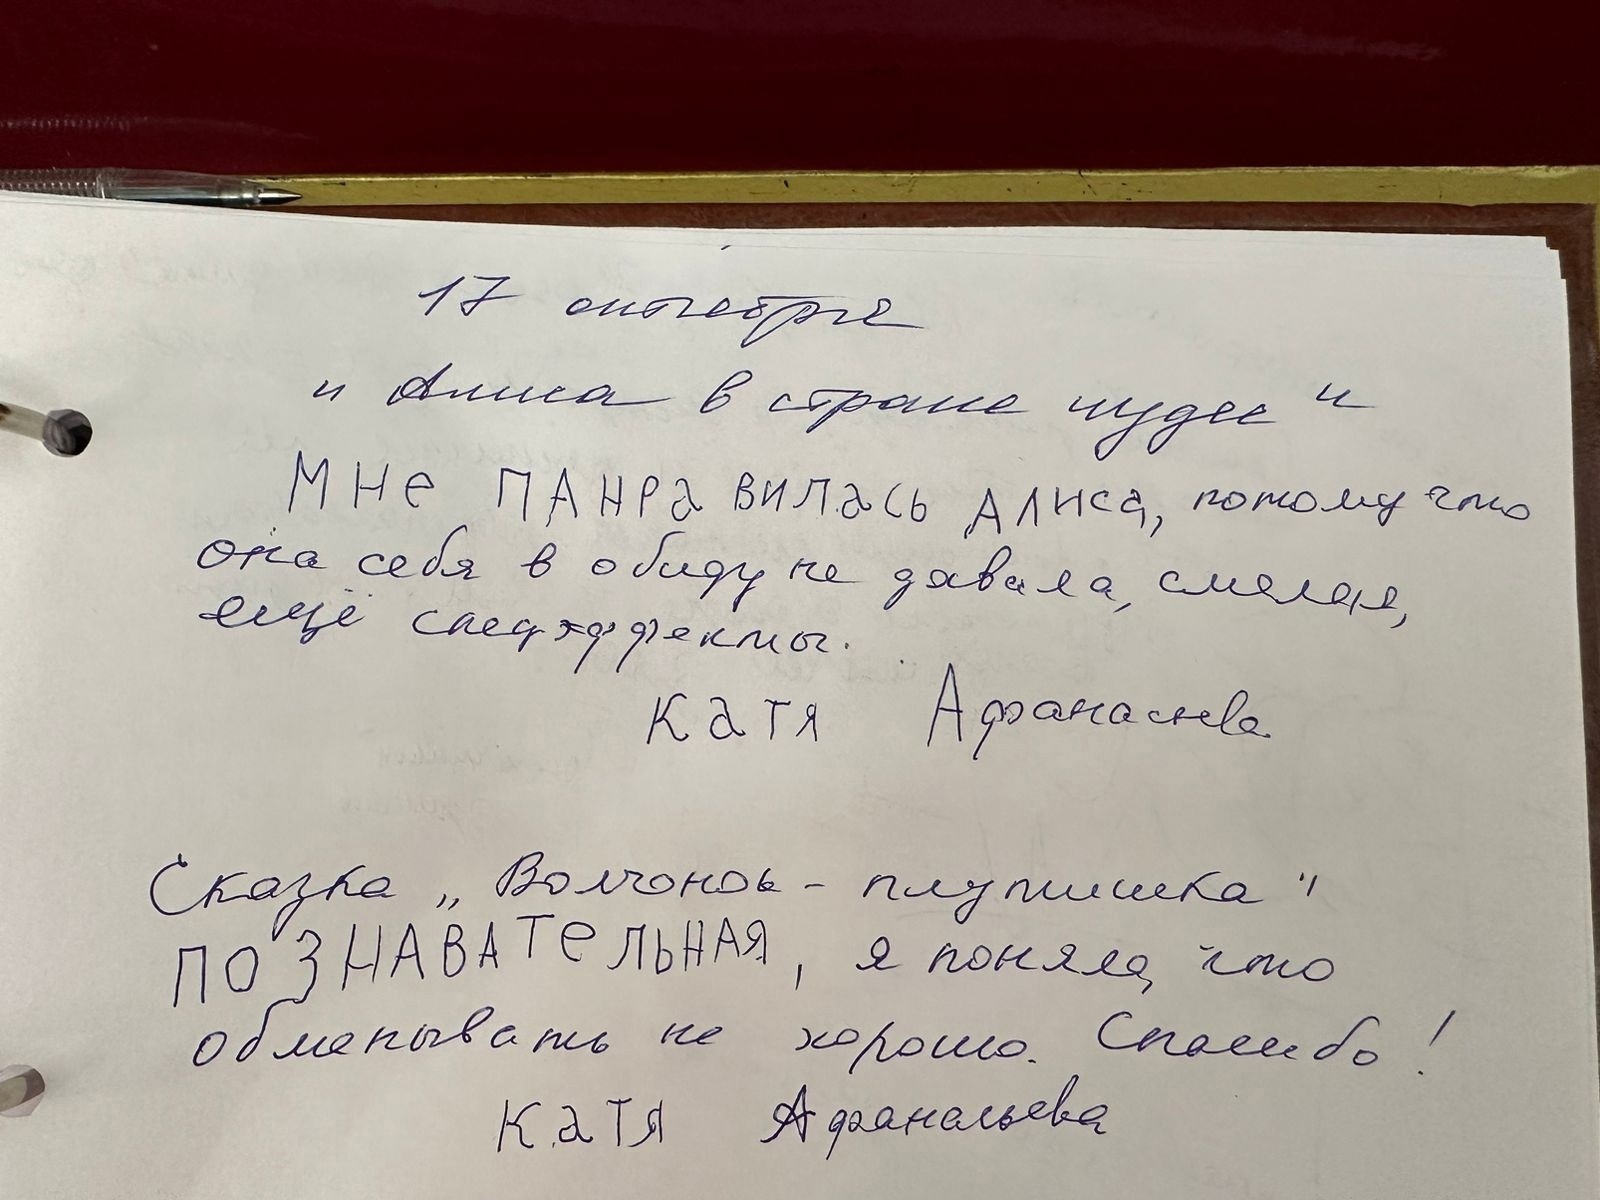 17 октября
"Алиса в стране чудес"
Мне ПАНРаВИЛаСЬ АЛИСа, потому что
она себя в обиду не давала, смелая,
ещё спецэффекты.
Катя Афанасьева
Сказка "Волчонок - плутишка"
ПОЗНАВАТеЛЬНАЯ, я поняла, что
обманывать не хорошо. Спасибо!
Катя Афанасьева